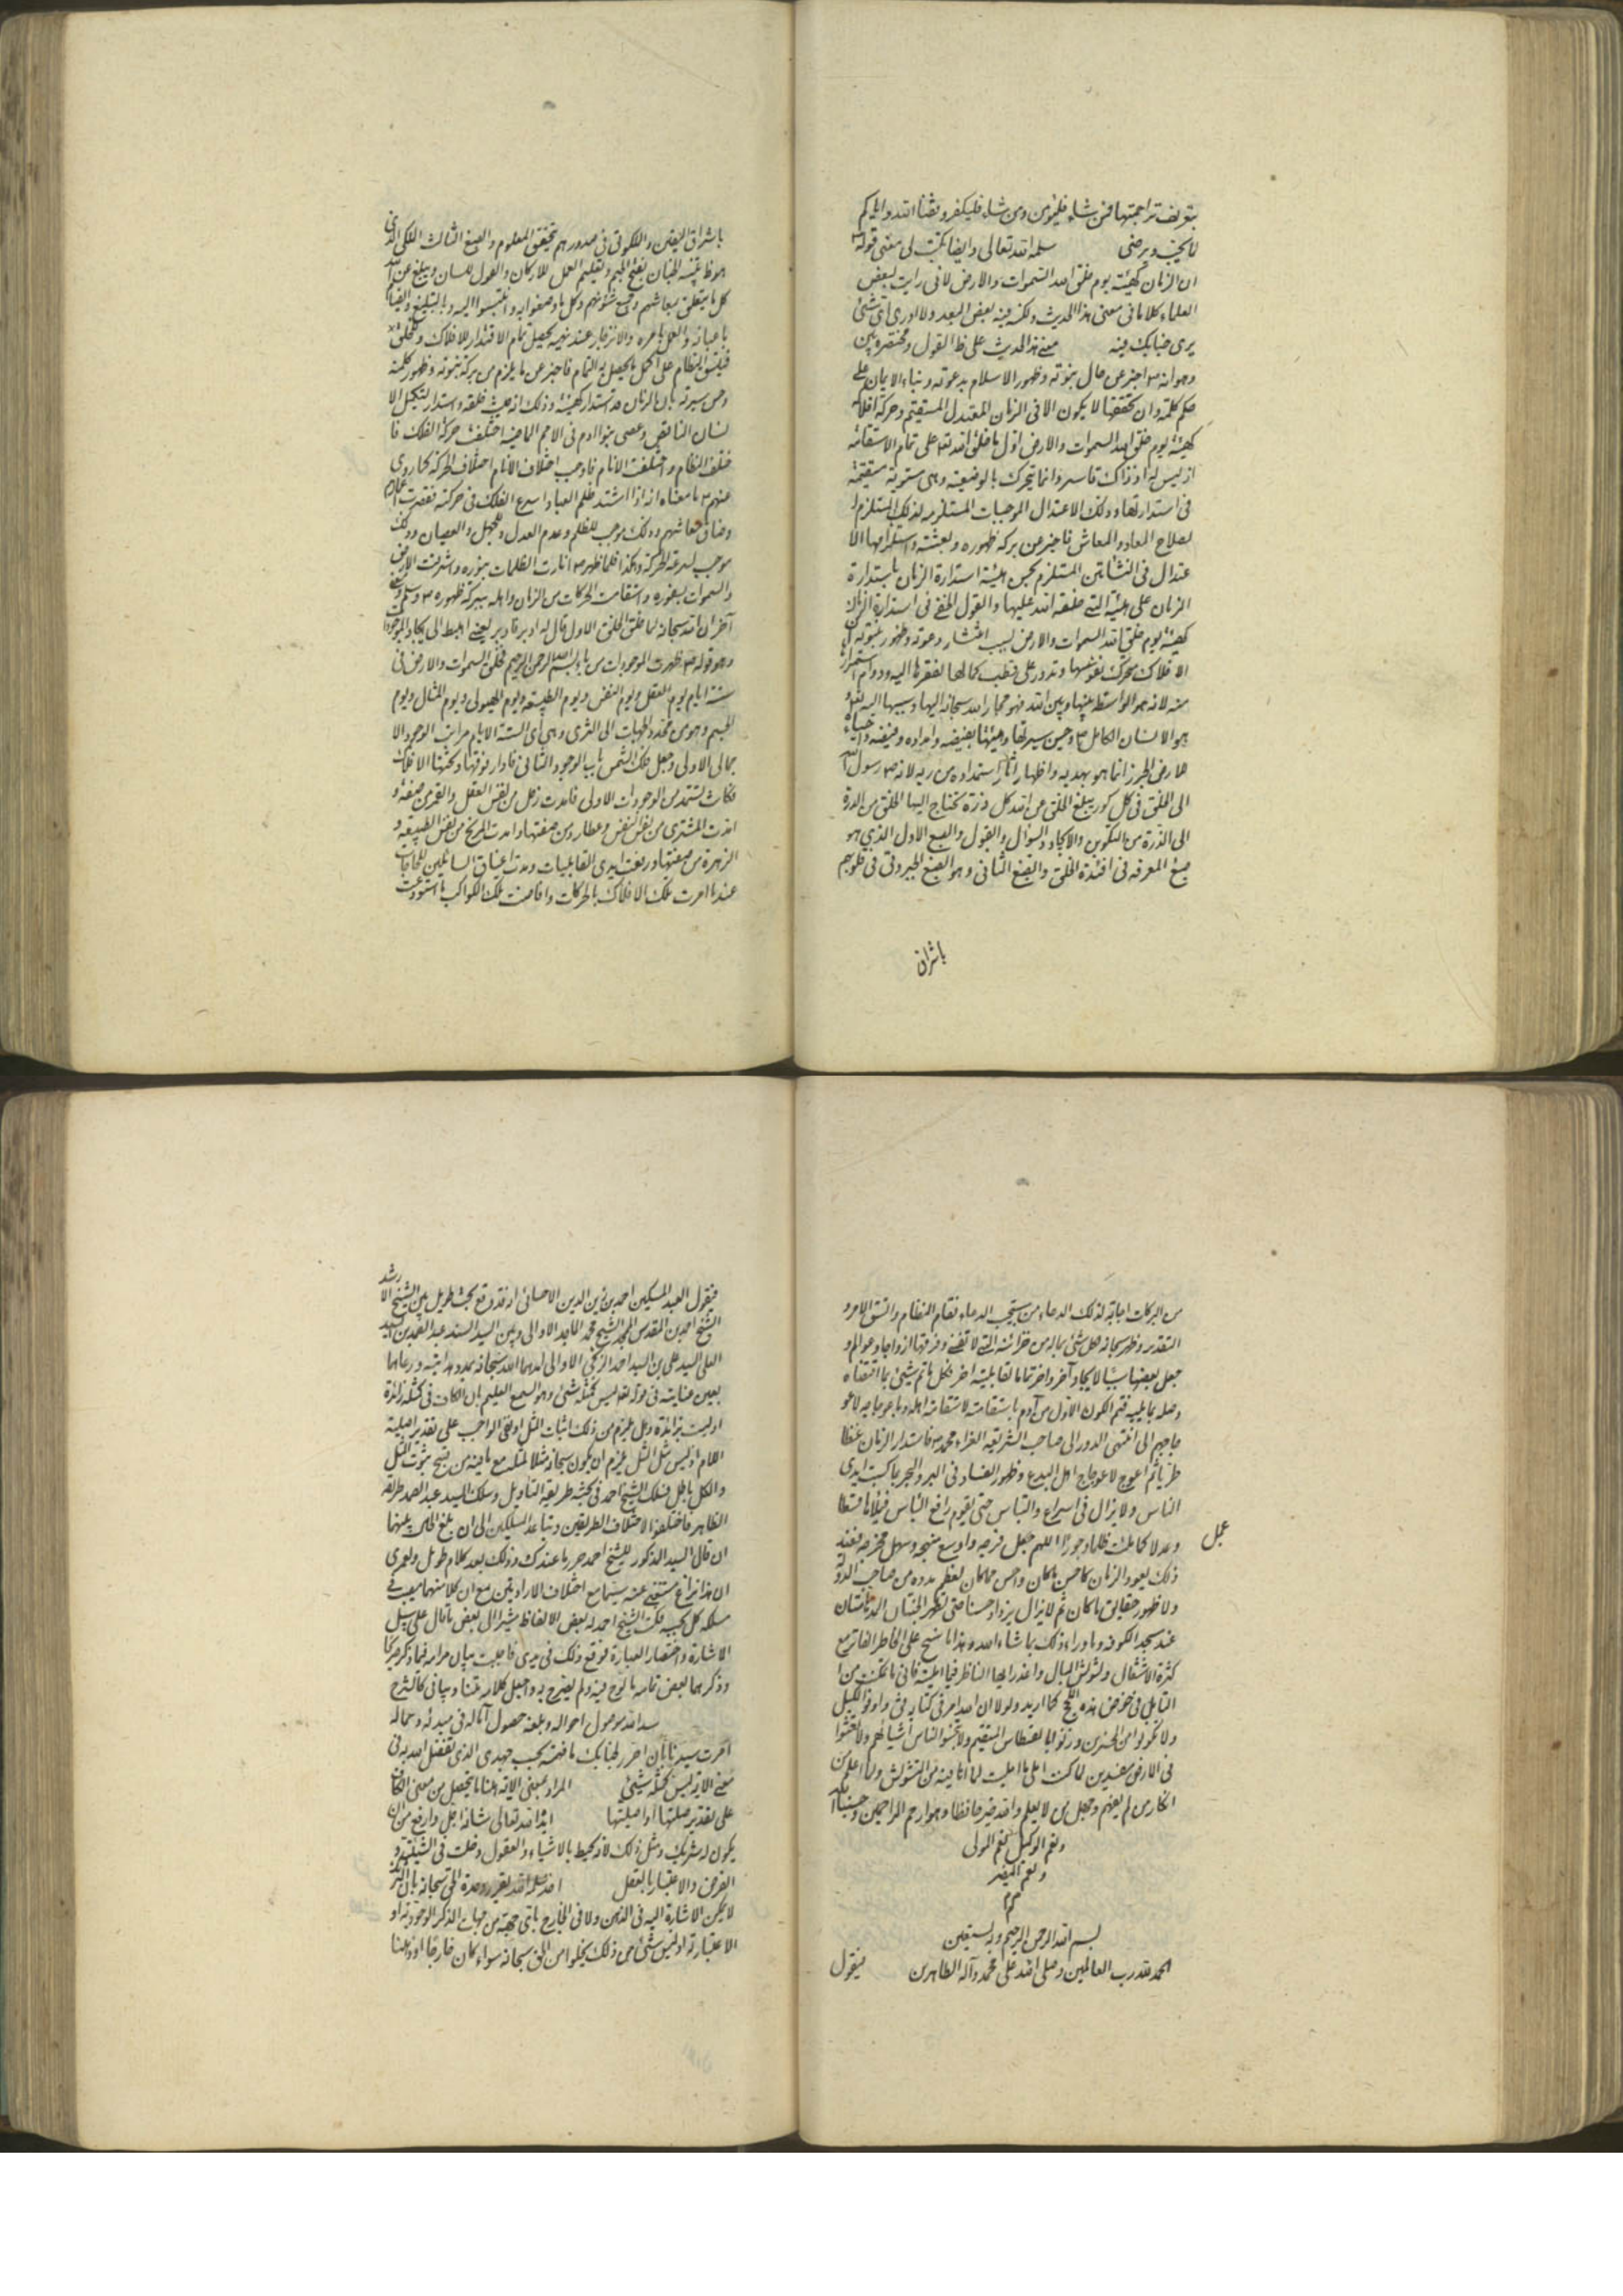 بتعريف تراجمتها فمن شاء فليؤمن ومن شاء فليكفر وفقنا الله واياكم
لما يحب ويرضى سلمه الله تعالى وايضا يكتب لي معنى قوله ص
ان الزمان كهيئة يوم خلق الله السموات والارض لاني رايت لبعض
العلماء كلاما في معنى هذا الحديث ولكن فيه بعض البعد ولا ادري اي شئ
يرى جنابك فيه معنى هذا الحديث على القول ومختصره
وهو انه ص اخبر عن حال نبوته وظهور الاسلام بدعوته وبناء الايمان على
حكم كلمة وان تحققها لا يكون الا في الزمان المعتدل المستقيم وحركة افلاكه
كهيئة يوم خلق الله السموات والارض اول ما خلق الله على تمام الاستقامة
اذ ليس له اذ ذاك قاسر وانما يتحرك بالوضعية وهي مستوية مستقيمة
في استدارتها وذلك الاعتدال الموجبات المستلزمه لذلك المستلزم
لصلاح المعاد والمعاش فاخبر عن بركة ظهوره وبعثته واستلزامها الا
عتدال في النشأتين المستلزم لحسن هيئة استدارة الزمان باستدارة
الزمان على هيئة التي خلقه الله عليها والقول في استدارة الزمان
كهيئة يوم خلق الله السموات والارض لسبب انتشار دعوته وظهور نبوته
الافلاك تتحرك بنفوسها وتدور على قطب كمالها لفقرها اليه ودوام استمرار
منه لانه هو الواسطة بينها وبين الله فهو مجار الله سبحانه اليها وسبيها اليه
هو الانسان الكامل وحسن سيرتها وهيئتها بفيضه وامداده
انما هو بهديه واظهار استمداده من ربه لانه ص رسول الله
الى الخلق في كل كور يبلغ الخلق عن الله كل ذرة تحتاج اليها الخلق من الدرة
الى الذرة من التكوين والايجاد والسؤال والقبول والصبغ الاول الذي هو
صبغ المعرفة في افئدة الخلق والصبغ الثاني وهو الصبغ الجبروتي في قلوبهم
باشراق
باشراق اليقين والملكوتي في صدورهم بتحقق المعلوم والصبغ الثالث الملكي الذي
هو بفتح الجيم وتعليم العمل للاركان والقول للسان ويبلغ عن الله
كل ما يتعلق بمعاشهم
والعمل بامره والانزجار عند نهيه يحصل تمام الاقتدار للافلاك
النظام على اكمل ما يحصل به التمام فاخبر عن ما يلزم من بركة نبوته وظهور كلمته
وحسن سيرته بان الزمان قد استدار كهيئته وذلك انه حيث خلقه واستدار لتكميل الا
نسان الناقص وعصى بنو ادم في الامم الماضية اختلفت حركة الفلك فا
ختلف النظام واختلفت الانام فاوجب اختلاف الانام اختلاف الحركة كما روي
عنهم ما معناه انه اذا اشتد ظلم العباد اسرع الفلك في حركته فقصرت
وضاق معاشهم وذلك موجب للظلم وعدم العدل والجهل والعصيان وذلك
موجب لسرعة الحركة وهكذا فلما ظهر ص انارت الظلمات بنوره واشرقت الارض
والسموات واستقامت الحركات من الزمان واهله ببركة ظهوره ص
آخر ان الله سبحانه لما خلق الخلق الاول قال له ادبر فادبر يعني اهبط الى
وهو قوله ص ظهرت الموجودات من باء بسم الله الرحمن الرحيم فخلق السموات والارض في
ستة ايام يوم العقل ويوم النفس ويوم الطبيعة ويوم الهيولى ويوم المثال ويوم
الجسم وهو من محدد الجهات الى الثرى وهي اي الستة الايام مراتب الوجود الا
جمالي الاولى وجعل فلك الشمس باب الوجود الثاني فادار فوقها وتحتها الافلاك
فكانت تستمد من الوجودات الاولى فامدت زحل من نفس العقل والقمر من صفته و
امدت المشتري من نفس النفس وعطارد من صفتها وامدت المريخ من نفس الطبيعة و
الزهرة من صفتها ورفعت ايدي القابليات ومدت اعناق السائلين للحاجات
عندما امرت تلك الافلاك بالحركات وافاضت تلك الكواكب ما استودعت
من البركات اجابة لذلك الدعاء من يستجيب الدعاء فقام النظام واتسق الامر و
التقدير وظهر سبحانه كل شئ بما له من خزائنه التي لا تفنى وفرقها ازواجا وعوالم و
جعل بعضها سببا لايجاد آخر واخر تماما لقابلية اخر فكل
وصله بما يليه فتم الكون الاول من آدم باستقامته لاستقامة اهله
الى ان انتهى الدور الى صاحب الشريعة الغراء محمد ص فاستدار الزمان غضا
طريا ثم اعوج لاعوجاج اهل البدع وظهور الفساد في البر والبحر بما كسبت ايدي
الناس ولا يزال في اسراع والتباس حتى يقوم رافع التباس فيملأها قسطا
وعدلا كما ملئت ظلما وجورا اللهم عجل فرجه واوسع منهجه وسهل مخرجه فعند
عجل
ذلك يعود الزمان كاحسن ما كان واحسن مما كان لعظم مدده من صاحب الدولة
ولا ظهور حقايق ما كان ثم لا يزال يزداد حسنا حتى تظهر الجنتان المدهامتان
عند مسجد الكوفة وما وراء ذلك بما شاء الله وهذا ما سنح على الخاطر الفاتر مع
كثرة الاشتغال وتشويش البال واعذر ايها الناظر فيما امليته فاني ما تمكنت من ا
لتأمل في خوض هذه اللجج كما اريد ولولا ان الله امر في كتابه واوفوا الكيل
ولا تكونوا من المخسرين وزنوا بالقسطاس المستقيم ولا تبخسوا الناس اشياءهم ولا تعثوا
في الارض مفسدين لما كنت املي ما امليت لما انا فيه من التشويش ولما اعلم من
انكار من لم يفهم وجهل من لا يعلم والله خير حافظا وهو ارحم الراحمين وحسبنا الله
ونعم الوكيل نعم المولى
ونعم النصير
بسم الله الرحمن الرحيم وبه نستعين
الحمد لله رب العالمين وصلى الله على محمد وآله الطاهرين فيقول
فيقول العبد المسكين احمد بن زين الدين الاحسائي انه قد وقع بحث طويل بين الشيخ الا رشد
الشيخ احمد بن المقدس الامجد الشيخ محمد الماجد الاوالي وبين السيد السند عبد الصمد بن السيد
العلي السيد علي بن السيد احمد الزكي الاوالي امدهما الله سبحانه بمدد هدايته ورعاهما
بعين عنايته في قوله تعالى ليس كمثله شئ وهو السميع العليم بان الكاف في كمثله زائدة
او ليست بزائدة وهل يلزم من ذلك اثبات المثل او نفي الواجب على تقدير اصلية
اللام اذ ليس مثل المثل يلزم ان يكون سبحانه مثلا لمثله مع ما فيه من قبح ثبوت المثل
والكل باطل فسلك الشيخ احمد في بحثه طريقة التأويل وسلك السيد عبد الصمد طريقة
الظاهر فاختلفوا لاختلاف الطريقين وتباعد المسلكين الى ان بلغ الحال بينهما
ان قال السيد المذكور للشيخ احمد حرر ما عندك وذلك بعد كلام طويل ولعمري
ان هذا نزاع مستغنى عنه سيما مع اختلاف الارادتين مع ان كلا منهما مصيب في
مسلكه كل بحسبه فكتب الشيخ احمد له بعض الالفاظ مشيرا الى بعض ما قال على سبيل
الاشارة واختصار العبارة فوقع ذلك في يدي فاجبت بيان مرامه فيما ذكر
وذكر بعض تمامه ما لوح فيه ولم يصرح به واجعل كلامه متنا وبياني كالشرح
سدد الله موصول احواله وبلغه حصول آماله في مبدئه ومآله
امرت سيدنا بان احرر لجنابك ما فهمته بحسب جهدي الذي تفضل الله به في
معنى الاية ليس كمثله شئ المراد بمعنى الاية هنا ما يتحصل من معنى الكاف
على تقدير صلتها او اصليتها الله تعالى شانه اجل وارفع من ان
يكون له شريك ومثل ذلك لانه محيط بالاشياء والعقول دخلت في الشيئية و
الفرض والاعتبار بالعقل اخذ سلمه الله يقرر وحدة الحق سبحانه بان
لا يمكن الاشارة اليه في الذهن ولا في الخارج باي جهة من جهات الذكر الوجودية او
الاعتبارية او ليس شئ من ذلك يخلو من الحق سبحانه سواء كان خارجا او ذهنا